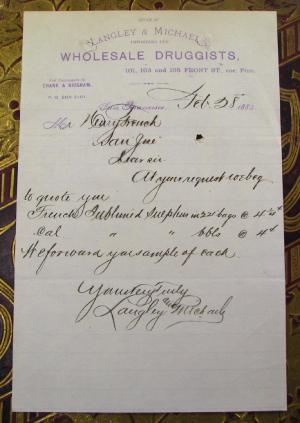 OFFICE OF
LANGLEY & MICHAELS
IMPORTING AND
WHOLESALE DRUGGISTS,
101, 103 and 105 FRONT ST., cor. Pine.
CRANE & BRIGHAM,
P. O. BOX
San Francisco, Feb 28 188
Mr Henry French
San José
Dear sir
At your request we beg
to quote you
French Sublimed Sulphur in 221 bags @
Cal " " bbls @
We forward you sample of each
Yours very truly
Langley and Michaels